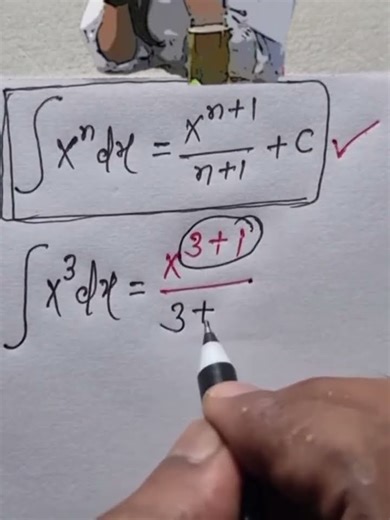 ∫ xⁿ dx = xⁿ⁺¹ / n+1 + C ✓
∫ x³ dx = x³⁺¹ / 3+